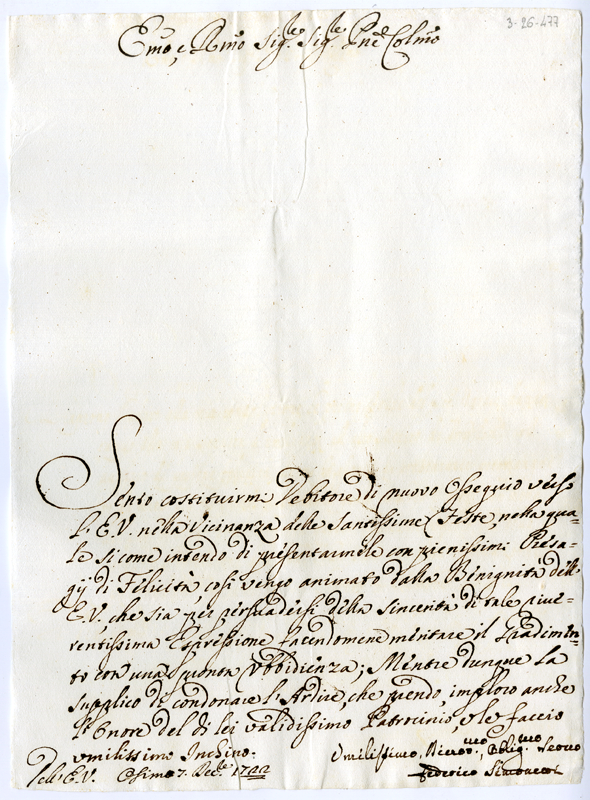 3-26-477
Emo, e Rmo Sigre. Sigre Pne Colmo
Sento costituirmi Debitore di nuovo Ossequio verso
l'E.V. nella Vicinanza delle Santissime Feste, nella qua-
le si come intendo di presentarmele con pienissimi Presa-
gij di Felicità, così vengo animato dalla Benignità dell'
E.V., che sia per persuadersi della sincerità di tale rive-
rentissima Espressione facendomene meritare il Gradimen-
to con una pronta Vbbidienza; Mentre dunque La
supplico di condonare l'Ardire, che prendo, imploro anche
l'Onore del di lei validissimo Patrocinio, e le faccio
umilissimo Inchino.
Dell'E.V. Osimo 7. Decre. 1722
Umilissimo, Divotmo, Obligmo Servo
Federico